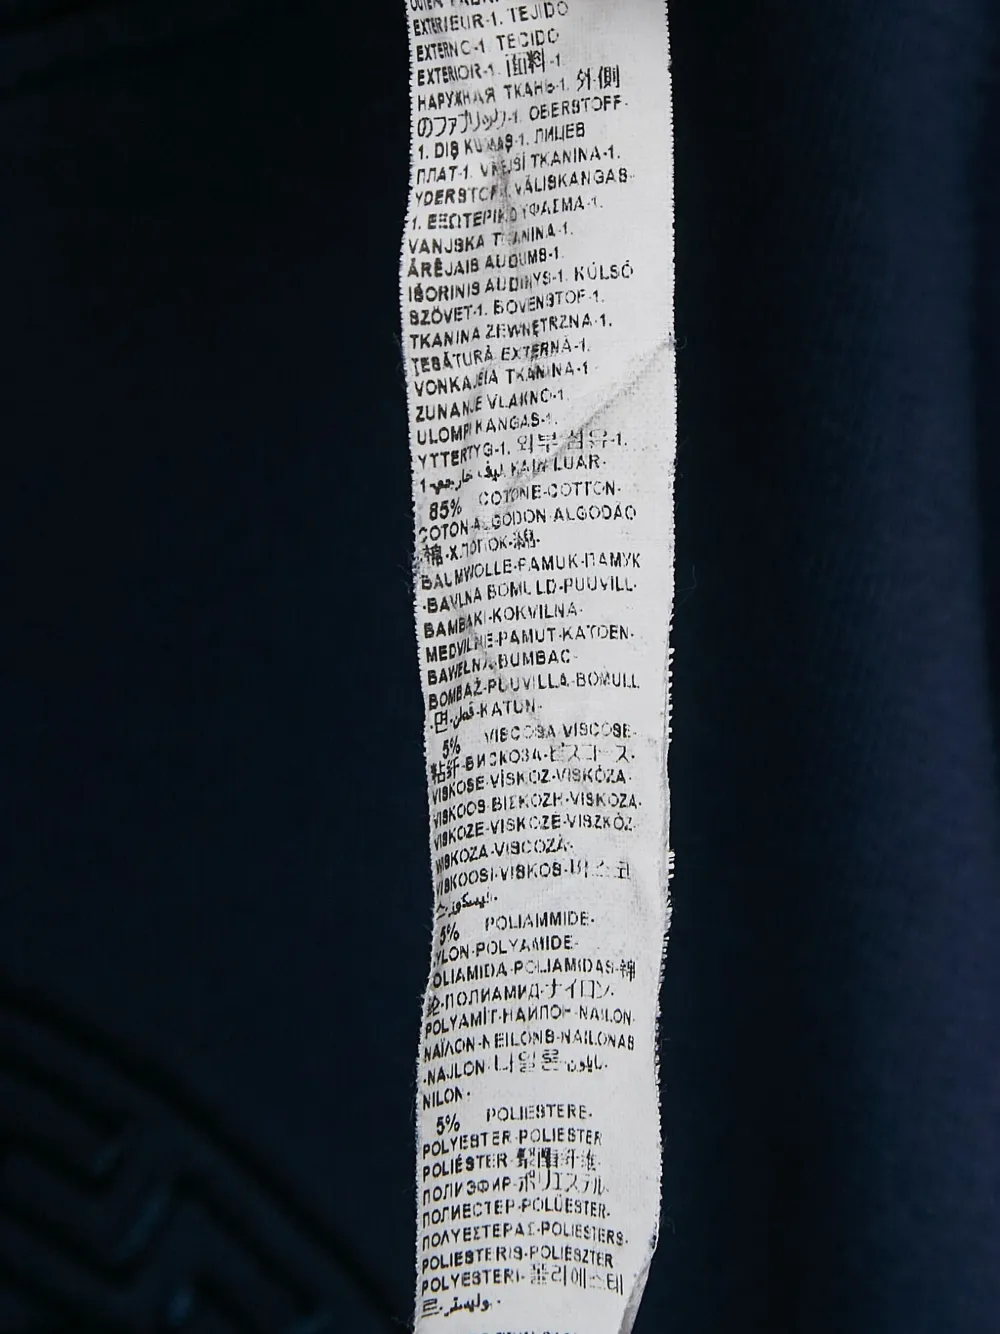 EXTÉRIEUR-1. TEJIDO
EXTERNO-1. TECIDO
EXTERIOR-1. 面料-1.
НАРУЖНАЯ ТКАНЬ-1. 外側
のファブリック-1. OBERSTOFF-
1. DIŞ KUMAŞ-1. ЛИЦЕВ
ПЛАТ-1. VNĚJŠÍ TKANINA-1.
YDERSTOF-1. VÄLISKANGAS-
1. ΕΞΩΤΕΡΙΚΟ ΥΦΑΣΜΑ-1.
VANJSKA TKANINA-1.
ĀRĒJAIS AUDUMS-1.
IŠORINIS AUDINYS-1. KÜLSŐ
SZÖVET-1. BOVENSTOF-1.
TKANINA ZEWNĘTRZNA-1.
ȚESĂTURĂ EXTERNĂ-1.
VONKAJŠIA TKANINA-1.
ZUNANJE VLAKNO-1.
ULOMPI KANGAS-1.
YTTERTYG-1. 외부 섬유-1.
ليف خارجي-1. KAIN LUAR-
85% COTONE-COTTON-
COTON-ALGODON-ALGODÃO
棉-ХЛОПОК-綿-
BAUMWOLLE-PAMUK-ПАМУК
-BAVLNA-BOMULD-PUUVILL-
BAMBAKI-KOKVILNA-
MEDVILNE-PAMUT-KATOEN-
BAWEŁNA-BUMBAC-
BOMBAŽ-PUUVILLA-BOMULL
-면-قطن-KATUN-
5% VISCOSA-VISCOSE-
粘纤-ВИСКОЗА-ビスコース-
VISKOSE-VİSKOZ-VISKÓZA-
VISKOOS-ΒΙΣΚΟΖΗ-VISKOZA-
VISKOZE-VISKOZĖ-VISZKÓZ-
WISKOZA-VISCOZĂ-
VISKOOSI-VISKOS-비스코
스-فيسكوز-
5% POLIAMMIDE-
NYLON-POLYAMIDE-
POLIAMIDA-POLIAMIDAS-锦
纶-ПОЛИАМИД-ナイロン-
POLYAMİT-НАЙЛОН-NAILON-
ΝΑΪΛΟΝ-NEILONS-NAILONAS
-NAJLON-나일론-نايلون-
NILON-
5% POLIESTERE-
POLYESTER-POLIESTER
POLIÉSTER-聚酯纤维-
ПОЛИЭФИР-ポリエステル-
ПОЛИЕСТЕР-POLÜESTER-
ΠΟΛΥΕΣΤΕΡΑΣ-POLIESTERS-
POLIESTERIS-POLIÉSZTER
POLYESTERI-폴리에스테
르-بوليستر-